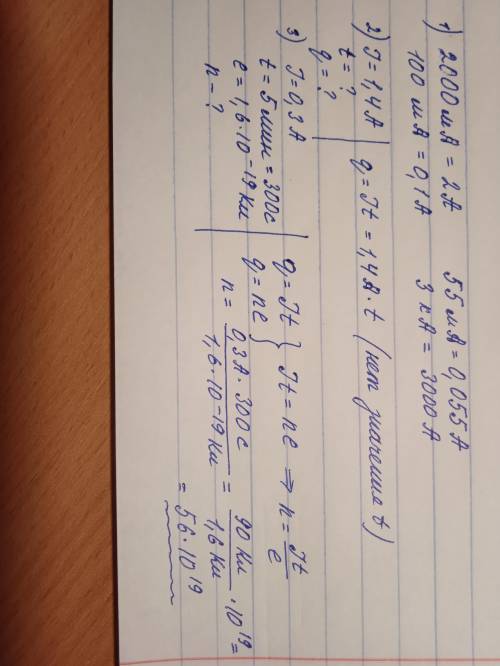 1) 2000 мА = 2А 55 мА = 0,055 А
100 мА = 0,1А 3 кА = 3000 А
2) I = 1,4А
t = ?
q = ?
q = It = 1,4А · t (нет значения t)
3) I = 0,3 А
t = 5 мин = 300с
e = 1,6·10-19 Кл
n - ?
q = It } It = ne ⇒ n = It/e
q = ne
n = 0,3А · 300с / 1,6·10-19 Кл = 90 Кл / 1,6 Кл · 10¹⁹ =
= 56·10¹⁹